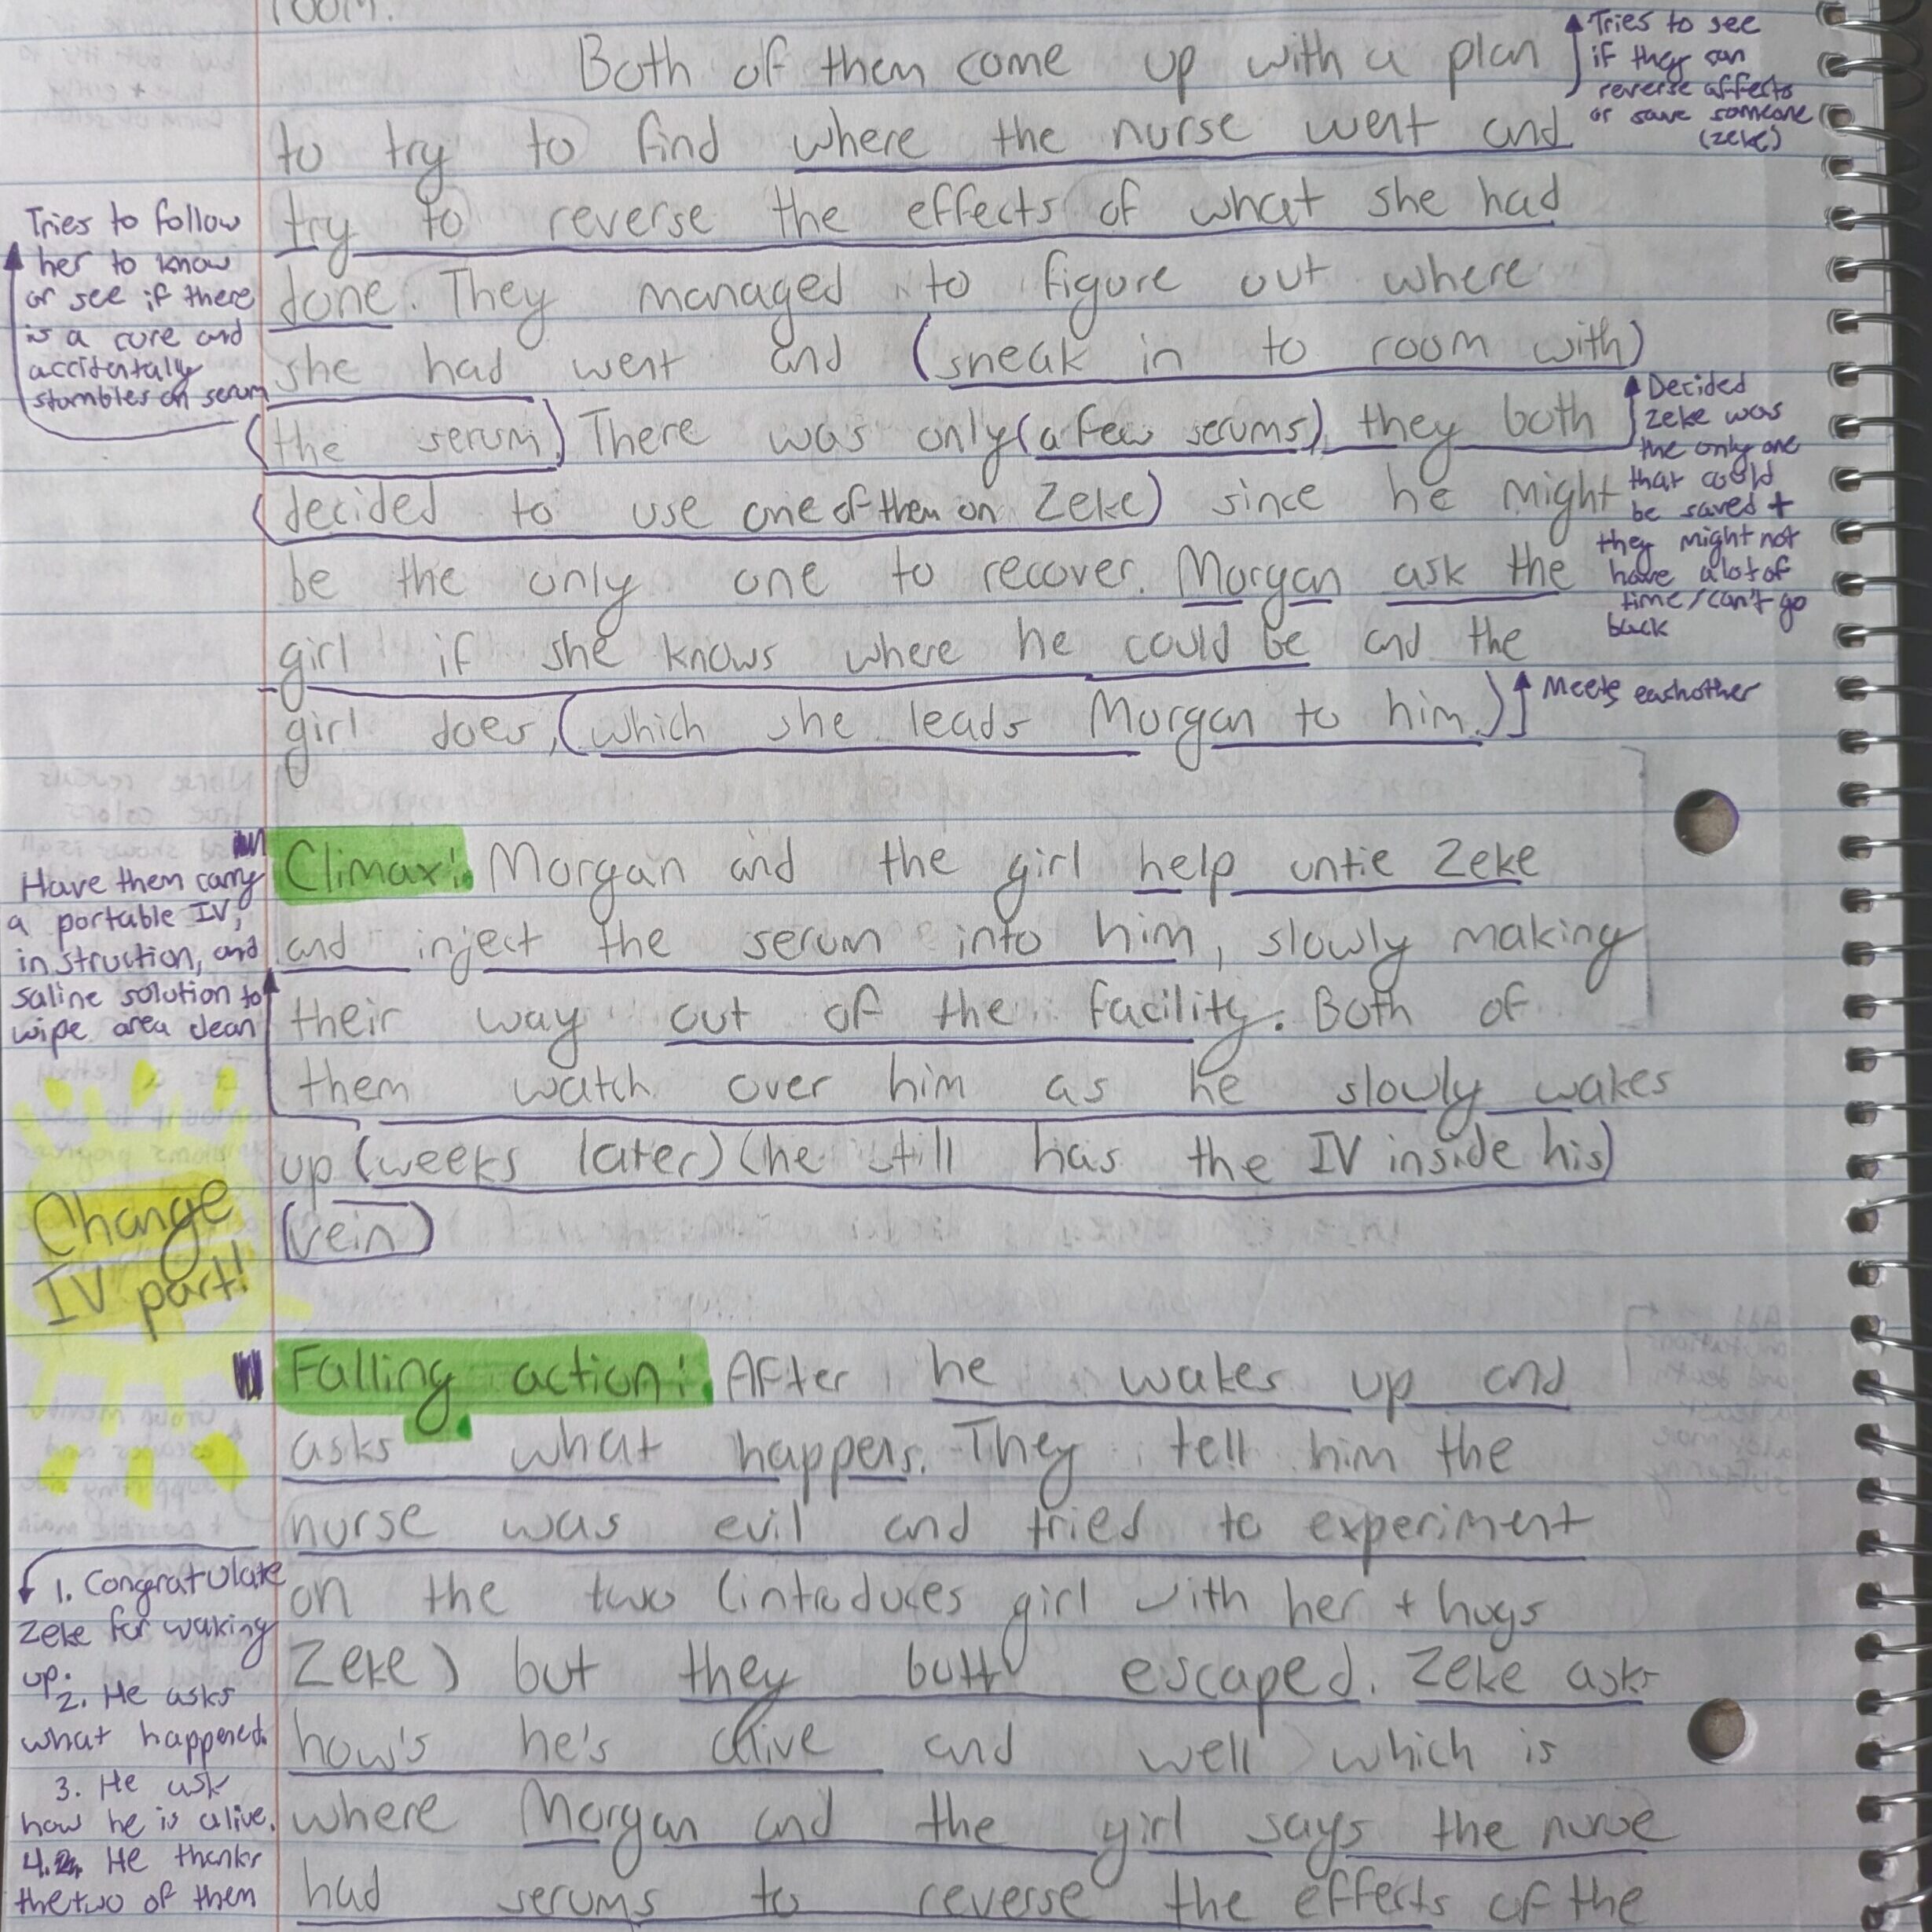 room.
Both of them come up with a plan
to try to find where the nurse went and
try to reverse the effects of what she had
done. They managed to figure out where
she had went and (sneak in to room with)
(the serum.) There was only (a few serums), they both
(decided to use one of them on Zeke) since he might
be the only one to recover. Morgan ask the
girl if she knows where he could be and the
girl does, (which she leads Morgan to him.)
Tries to see
if they can
reverse affects
or save someone
(zeke)
Tries to follow
her to know
or see if there
is a cure and
accidentally
stumbles on serum
Decided
Zeke was
the only one
that could
be saved +
they might not
have a lot of
time/can't go
back
Meets eachother
Climax: Morgan and the girl help untie Zeke
and inject the serum into him, slowly making
their way out of the facility. Both of
them watch over him as he slowly wakes
up (weeks later) (he still has the IV inside his)
(vein)
Have them carry
a portable IV,
instruction, and
saline solution to
wipe area clean
Change
IV part!
Falling action: After he wakes up and
asks what happens. They tell him the
nurse was evil and tried to experiment
on the two (introduces girl with her + hugs
Zeke) but they escaped. Zeke asks
how's he's alive and well which is
where Morgan and the girl says the nurse
had serums to reverse the effects of the
1. Congratulate
Zeke for waking
up.
2. He asks
what happened.
3. He ask
how he is alive.
4. He thanks
the two of them